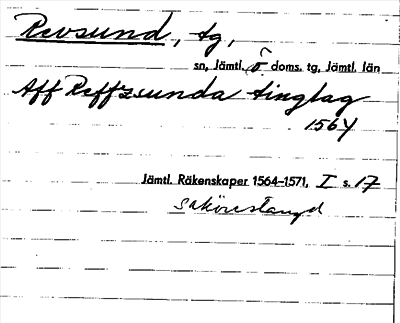 Revsund, tg,
sn, Jämtl. ö doms. tg, Jämtl. län
Aff Reffzsunda tinglag
1564
Jämtl. Räkenskaper 1564-1571, I s. 17
saköreslängd